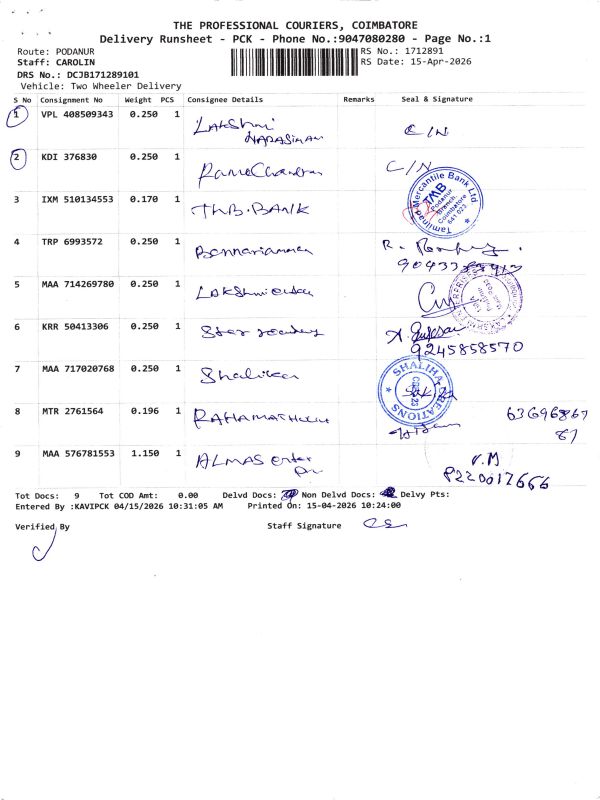 THE PROFESSIONAL COURIERS, COIMBATORE
Delivery Runsheet - PCK - Phone No.:9047080280 - Page No.:1
Route: PODANUR
RS No.: 1712891
Staff: CAROLIN
RS Date: 15-Apr-2026
DRS No.: DCJB171289101
Vehicle: Two Wheeler Delivery
S No Consignment No Weight PCS Consignee Details Remarks Seal & Signature
1 VPL 408509343 0.250 1 Lakshmi Narasiman C/N
2 KDI 376830 0.250 1 RameChandran C/N
3 IXM 510134553 0.170 1 TMB.BANK
Tamilnad Mercantile Bank Ltd
TMB
Podanur
Branch,
Coimbatore
641 023
4 TRP 6993572 0.250 1 R.
5 MAA 714269780 0.250 1
6 KRR 50413306 0.250 1 Star
9245858570
7 MAA 717020768 0.250 1 Shalihaa
SHALIHA CREATIONS
8 MTR 2761564 0.196 1
9 MAA 576781553 1.150 1 ALMAS enter
V.M
8220017666
Tot Docs: 9 Tot COD Amt: 0.00 Delvd Docs: Non Delvd Docs: Delvy Pts:
Entered By :KAVIPCK 04/15/2026 10:31:05 AM Printed On: 15-04-2026 10:24:00
Verified By Staff Signature